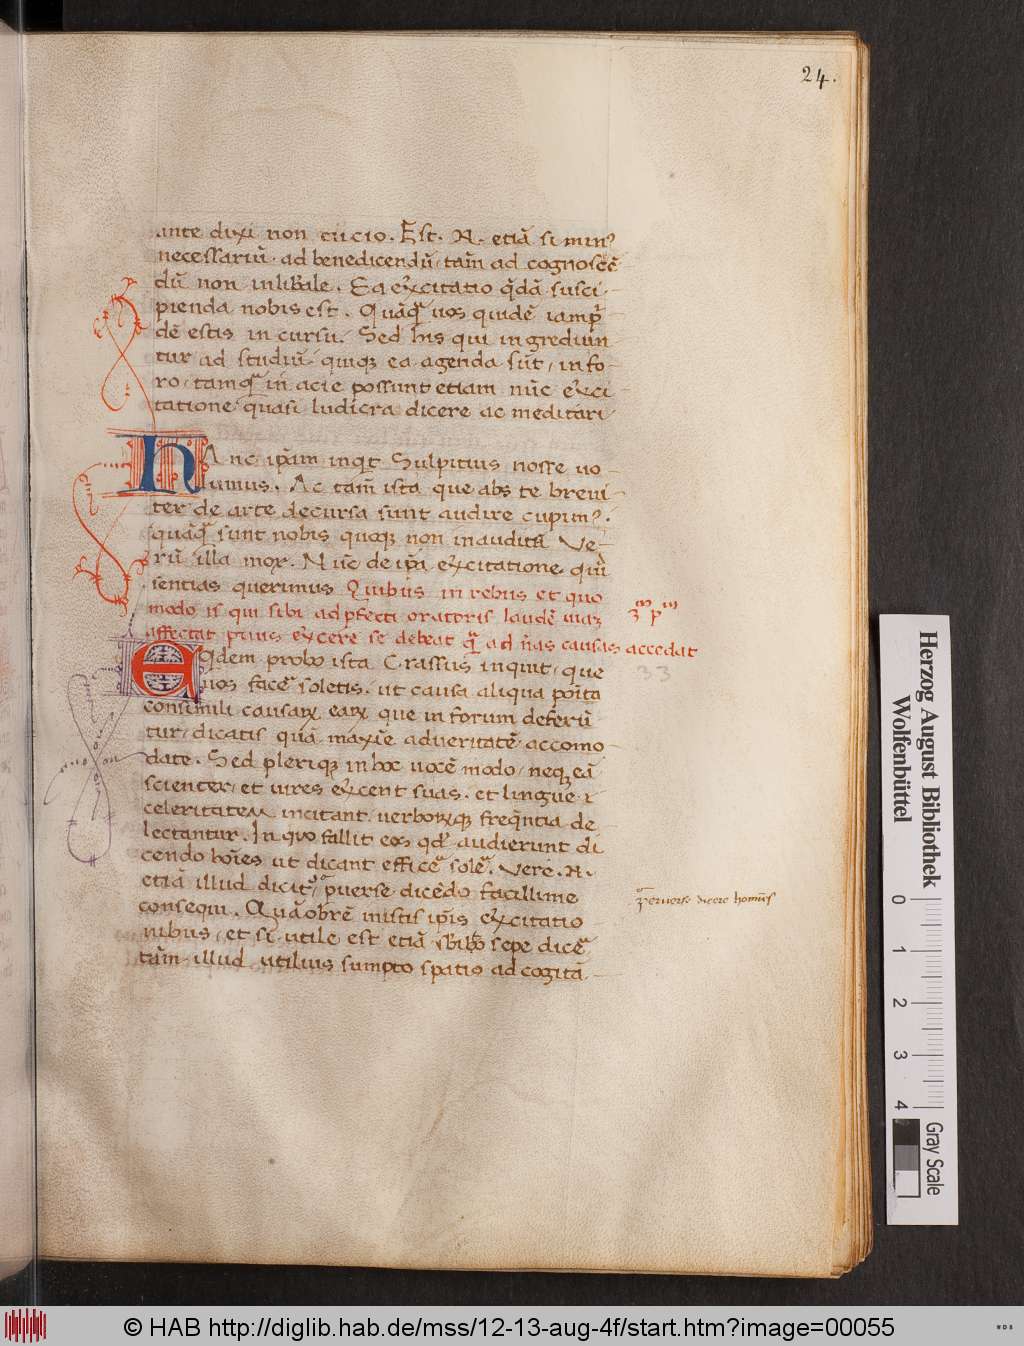 24.
ante dixi non tucio. Est. N. etiã si min⁹
necessariũ. ad benedicendũ, tam̃ ad cognoscẽ
dũ non inlib̃ale. Ea ex̃citatio q̃dã susci-
pienda nobis est. Quãq̃ uos quidẽ iamp̃
dẽ estis in cursu. Sed his qui ingrediun
tur ad studiũ, quiq; ea agenda sũt, in fo-
ro, tamq̃ in acie possunt etiam nũc ex̃ci
tatione quasi ludicra dicere ac meditari
HAnc ip̃am inq̃t Sulpitius nosse uo-
lumus. Ac tam̃ ista que abs te breui-
ter de arte decursa sunt audire cupim⁹.
quãq̃ sunt nobis quoq; non inaudita Ve-
rũ illa mox. Nũc de ip̃a ex̃citatione quid
sentias querimus Quibus in rebus et quo
modo is qui sibi ad p̃fecti oratoris laudẽ uiaz
affectat prius ex̃cere se debeat q̃ ad ũas causas accedat
EQdem probo ista Crassus inquit, que
uos facẽ soletis. ut causa aliqua po͂ita
consimili causarꝝ earꝝ que in forum deferũ
tur, dicatis quã maxĩe adueritatẽ accomo-
date. Sed pleriq; in hoc uocẽ modo, neq; eã
scienter, et uires ex̃cent suas. et lingue
celeritatem incitant, uerborꝝq; freq̃ntia de
lectantur. In quo fallit eos qd' audierunt di
cendo hoĩes ut dicant efficẽ solẽ. Vere. N.
etiã illud dicit᷑, p̃uerse dicẽdo facillime
consequi. Quãobrẽ in istis ip̃is ex̃citatio
nibus, et si utile est etiã sepe dicẽ
tam̃ illud utilius sumpto spatio ad cogitã-
33
peruerse dicere homines
Herzog August Bibliothek
Wolfenbüttel
0 1 2 3 4
Gray Scale
© HAB http://diglib.hab.de/mss/12-13-aug-4f/start.htm?image=00055